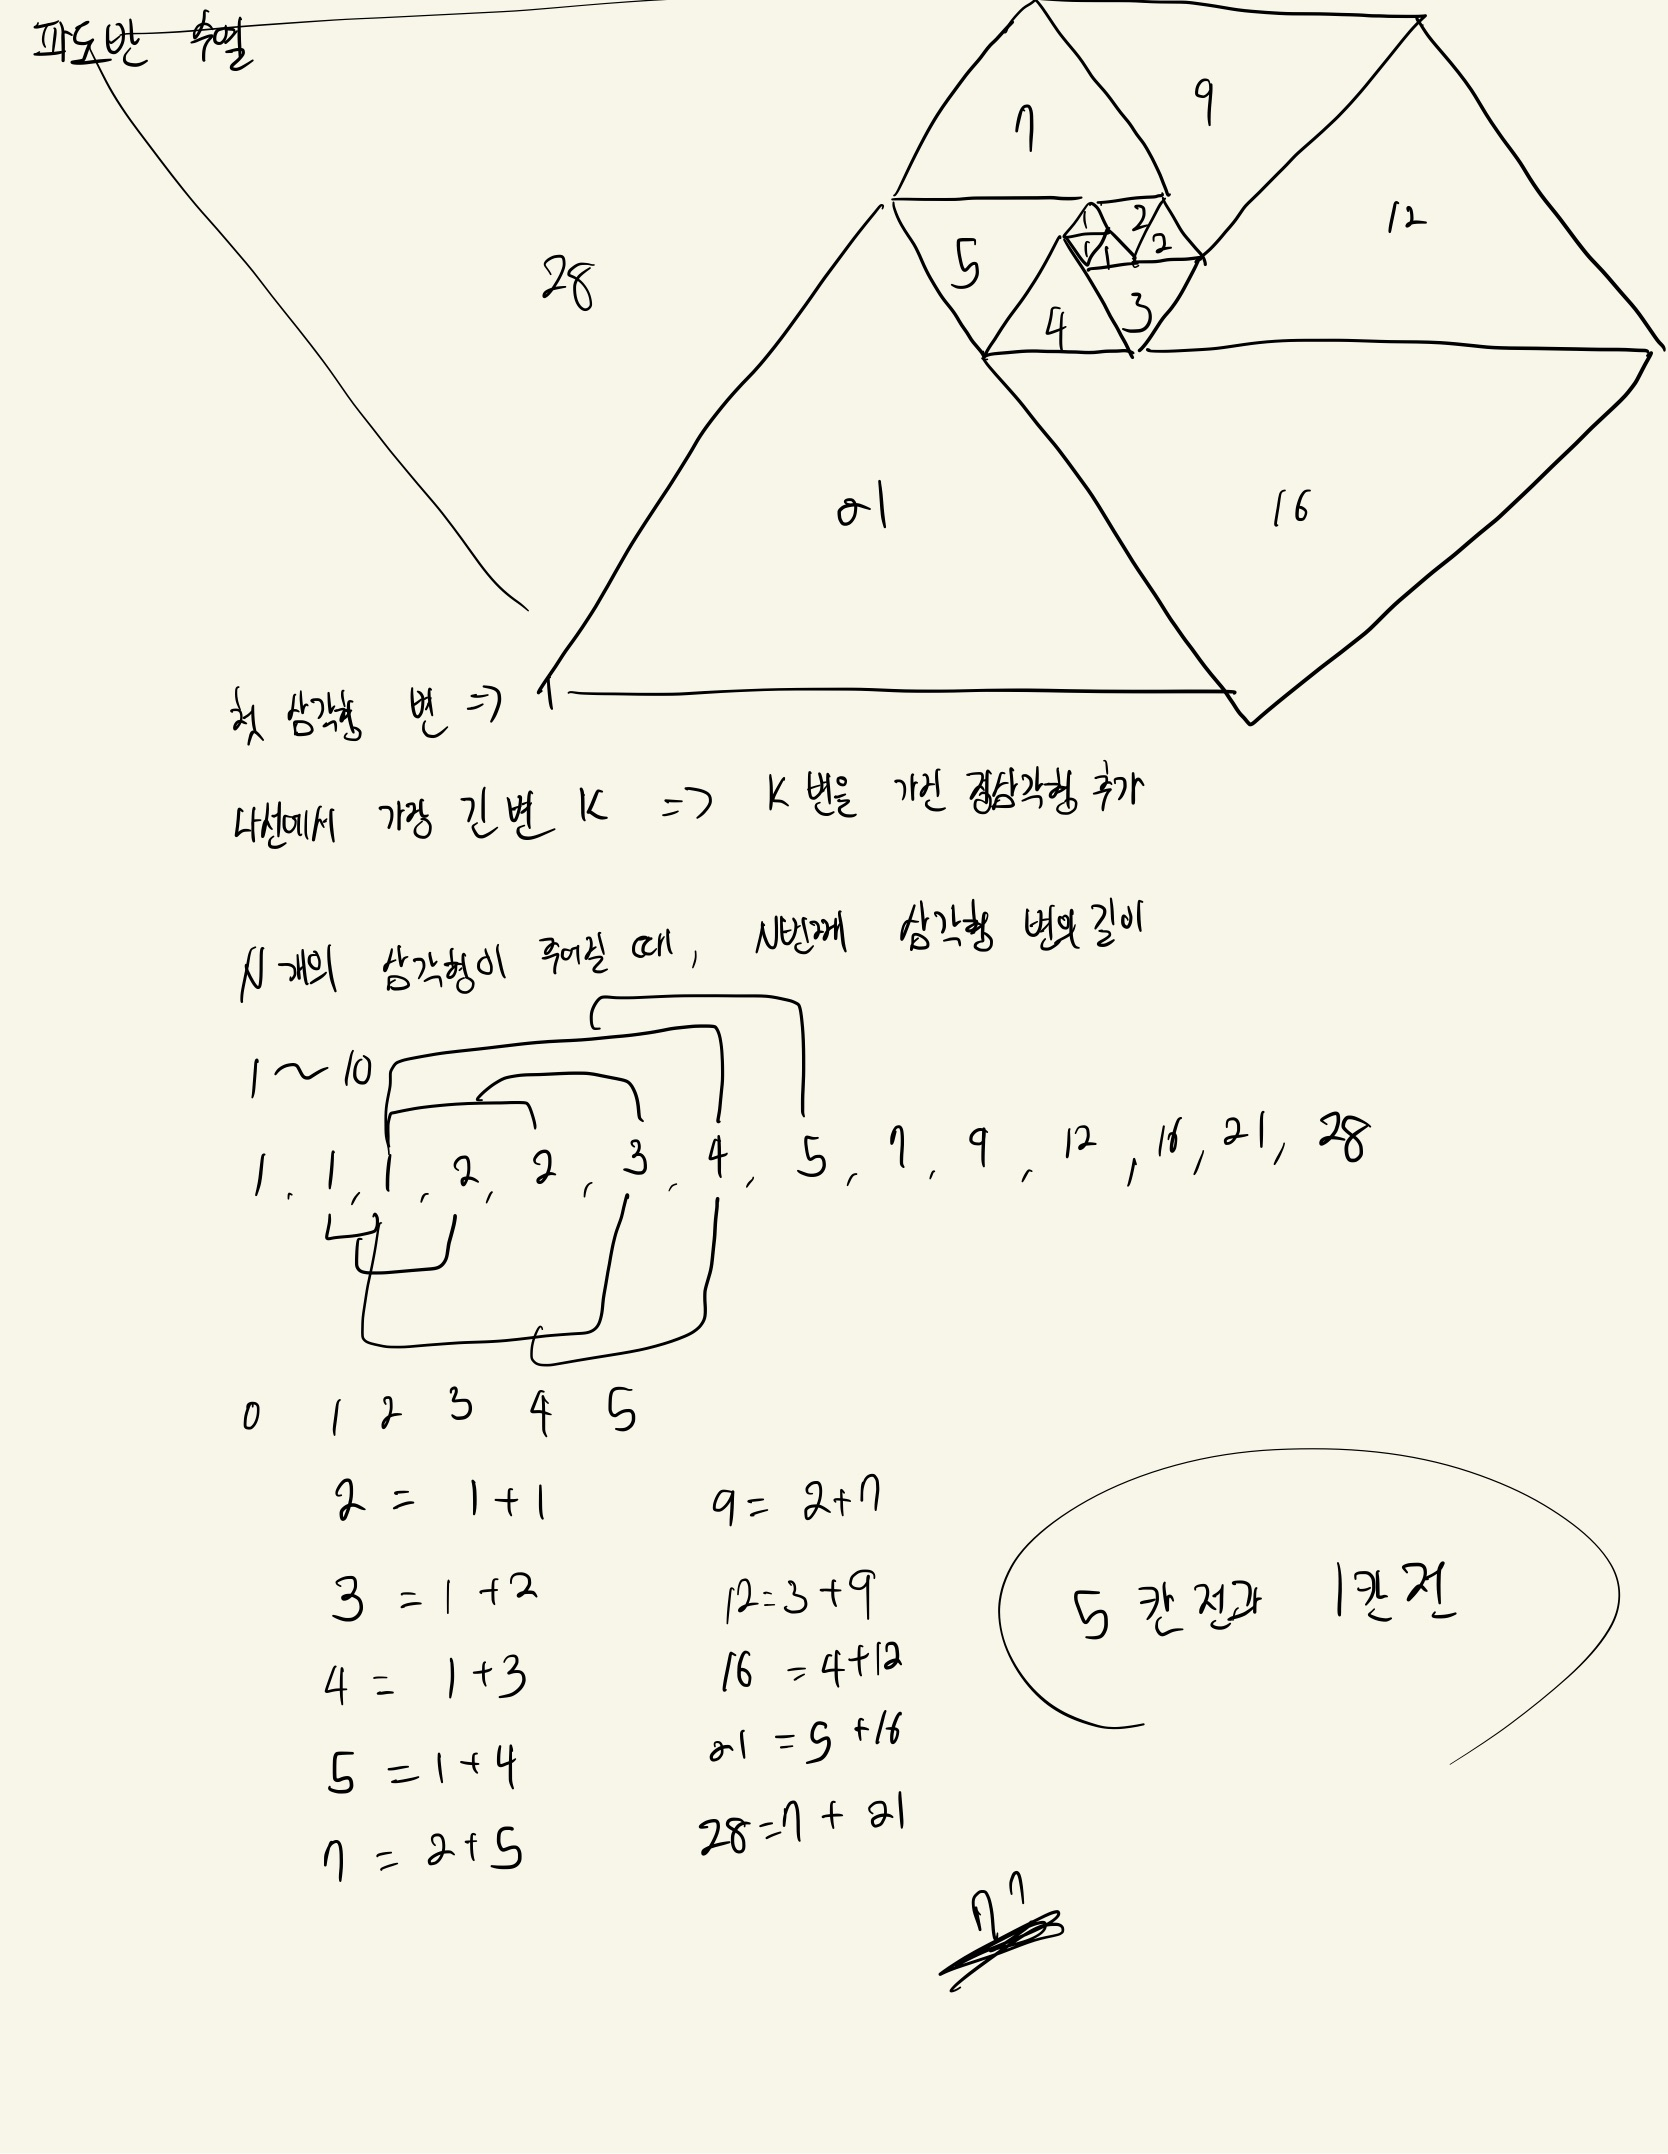 파도반 수열
7
9
28
5
1
2
12
1
1
2
4
3
21
16
첫 삼각형 변 => 1
나선에서 가장 긴 변 K => K 변을 가진 정삼각형 추가
N개의 삼각형이 주어질 때, N번째 삼각형 변의 길이
1 ~ 10
1, 1, 1, 2, 2, 3, 4, 5, 7, 9, 12, 16, 21, 28
0 1 2 3 4 5
2 = 1+1
3 = 1+2
4 = 1+3
5 = 1+4
7 = 2+5
9 = 2+7
12=3+9
16 = 4+12
21 = 5+16
28=7 + 21
5칸 전과 1칸 전